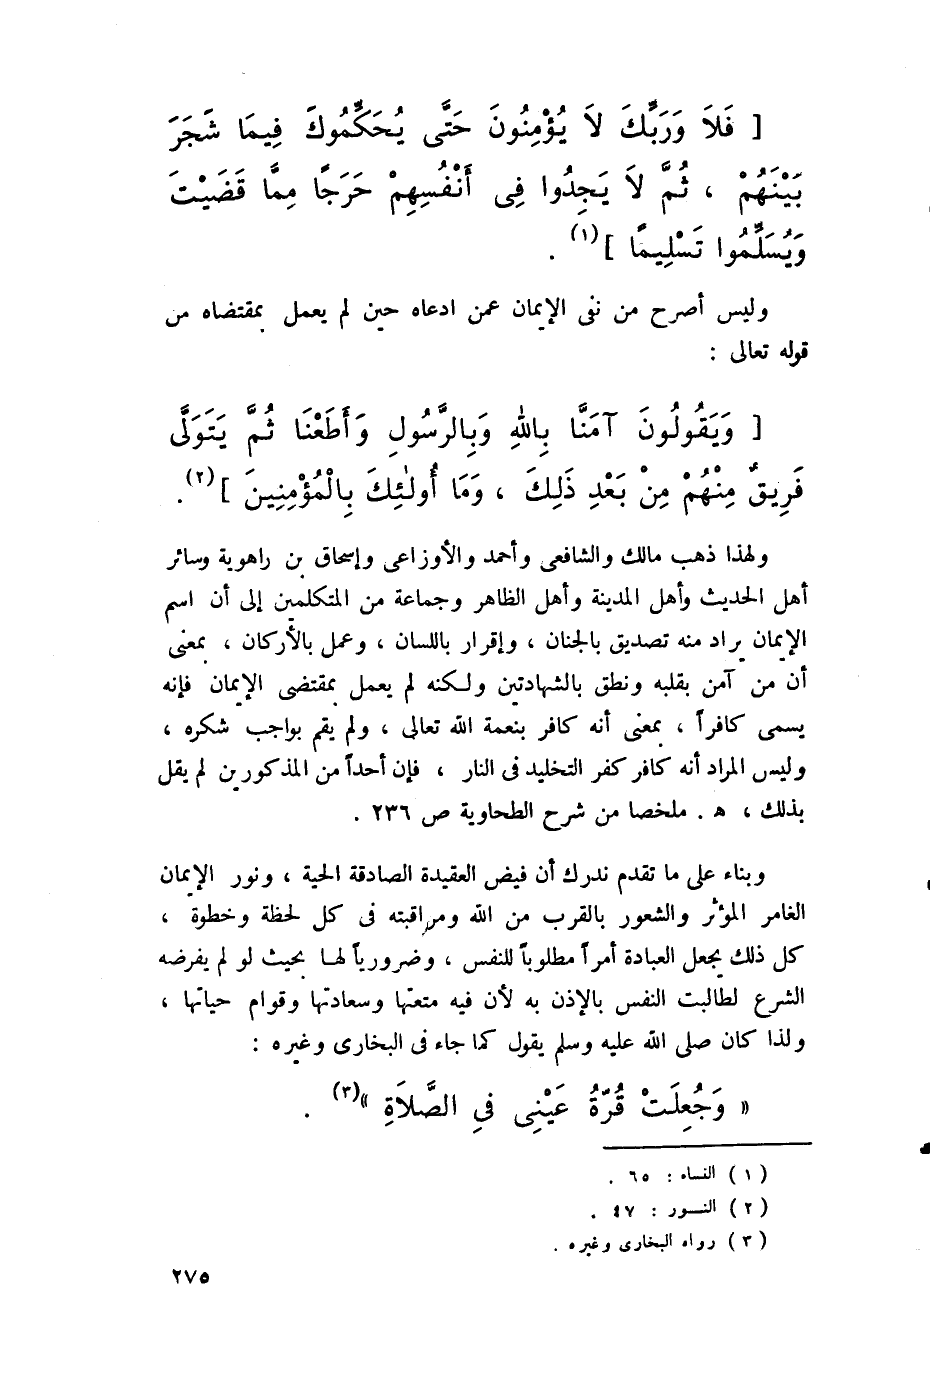 [ فَلاَ وَرَبِّكَ لاَ يُؤْمِنُونَ حَتَّى يُحَكِّمُوكَ فِيمَا شَجَرَ
بَيْنَهُمْ ، ثُمَّ لاَ يَجِدُوا فِى أَنْفُسِهِمْ حَرَجًا مِمَّا قَضَيْتَ
وَيُسَلِّمُوا تَسْلِيمًا ](١) .
وليس أصرح من نفى الإيمان عمن ادعاه حين لم يعمل بمقتضاه من
قوله تعالى :
[ وَيَقُولُونَ آمَنَّا بِاللهِ وَبِالرَّسُولِ وَأَطَعْنَا ثُمَّ يَتَوَلَّى
فَرِيقٌ مِنْهُمْ مِنْ بَعْدِ ذَلِكَ ، وَمَا أُولٰئِكَ بِالْمُؤْمِنِينَ ](٢).
ولهذا ذهب مالك والشافعى وأحمد والأوزاعى وإسحاق بن راهوية وسائر
أهل الحديث وأهل المدينة وأهل الظاهر وجماعة من المتكلمين إلى أن اسم
الإيمان يراد منه تصديق بالجنان ، وإقرار باللسان ، وعمل بالأركان ، بمعنى
أن من آمن بقلبه ونطق بالشهادتين ولكنه لم يعمل بمقتضى الإيمان فإنه
يسمى كافراً ، بمعنى أنه كافر بنعمة الله تعالى ، ولم يقم بواجب شكره ،
وليس المراد أنه كافر كفر التخليد فى النار ، فإن أحداً من المذكورين لم يقل
بذلك ، هـ . ملخصا من شرح الطحاوية ص ٢٣٦ .
وبناء على ما تقدم ندرك أن فيض العقيدة الصادقة الحية ، ونور الإيمان
الغامر المؤثر والشعور بالقرب من الله ومراقبته فى كل لحظة وخطوة ،
كل ذلك يجعل العبادة أمراً مطلوباً للنفس ، وضرورياً لها بحيث لو لم يفرضه
الشرع لطالبت النفس بالإذن به لأن فيه متعتها وسعادتها وقوام حياتها ،
ولذا كان صلى الله عليه وسلم يقول كما جاء فى البخارى وغيره :
« وَجُعِلَتْ قُرَّةُ عَيْنِى فِي الصَّلاَةِ »(٣) .
( ١ ) النساء : ٦٥ .
( ٢ ) النـور : ٤٧ .
( ٣ ) رواه البخارى وغيره .
٢٧٥